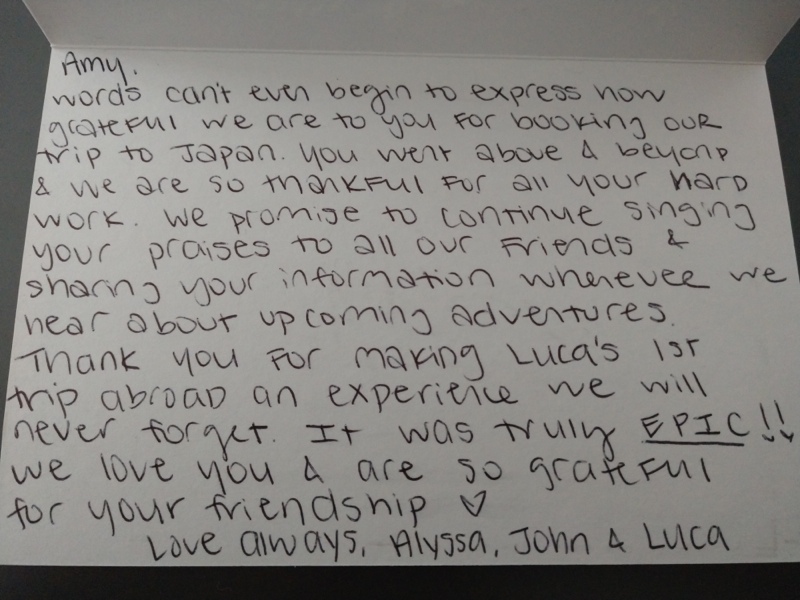 Amy,
words can't even begin to express how
grateful we are to you for booking our
trip to Japan. You went above & beyond
& we are so thankful for all your hard
work. We promise to continue singing
your praises to all our friends &
sharing your information whenever we
hear about upcoming adventures.
Thank you for making Luca's 1st
trip abroad an experience we will
never forget. It was truly EPIC!!
we love you & are so grateful
for your friendship ♡
Love always, Alyssa, John & Luca